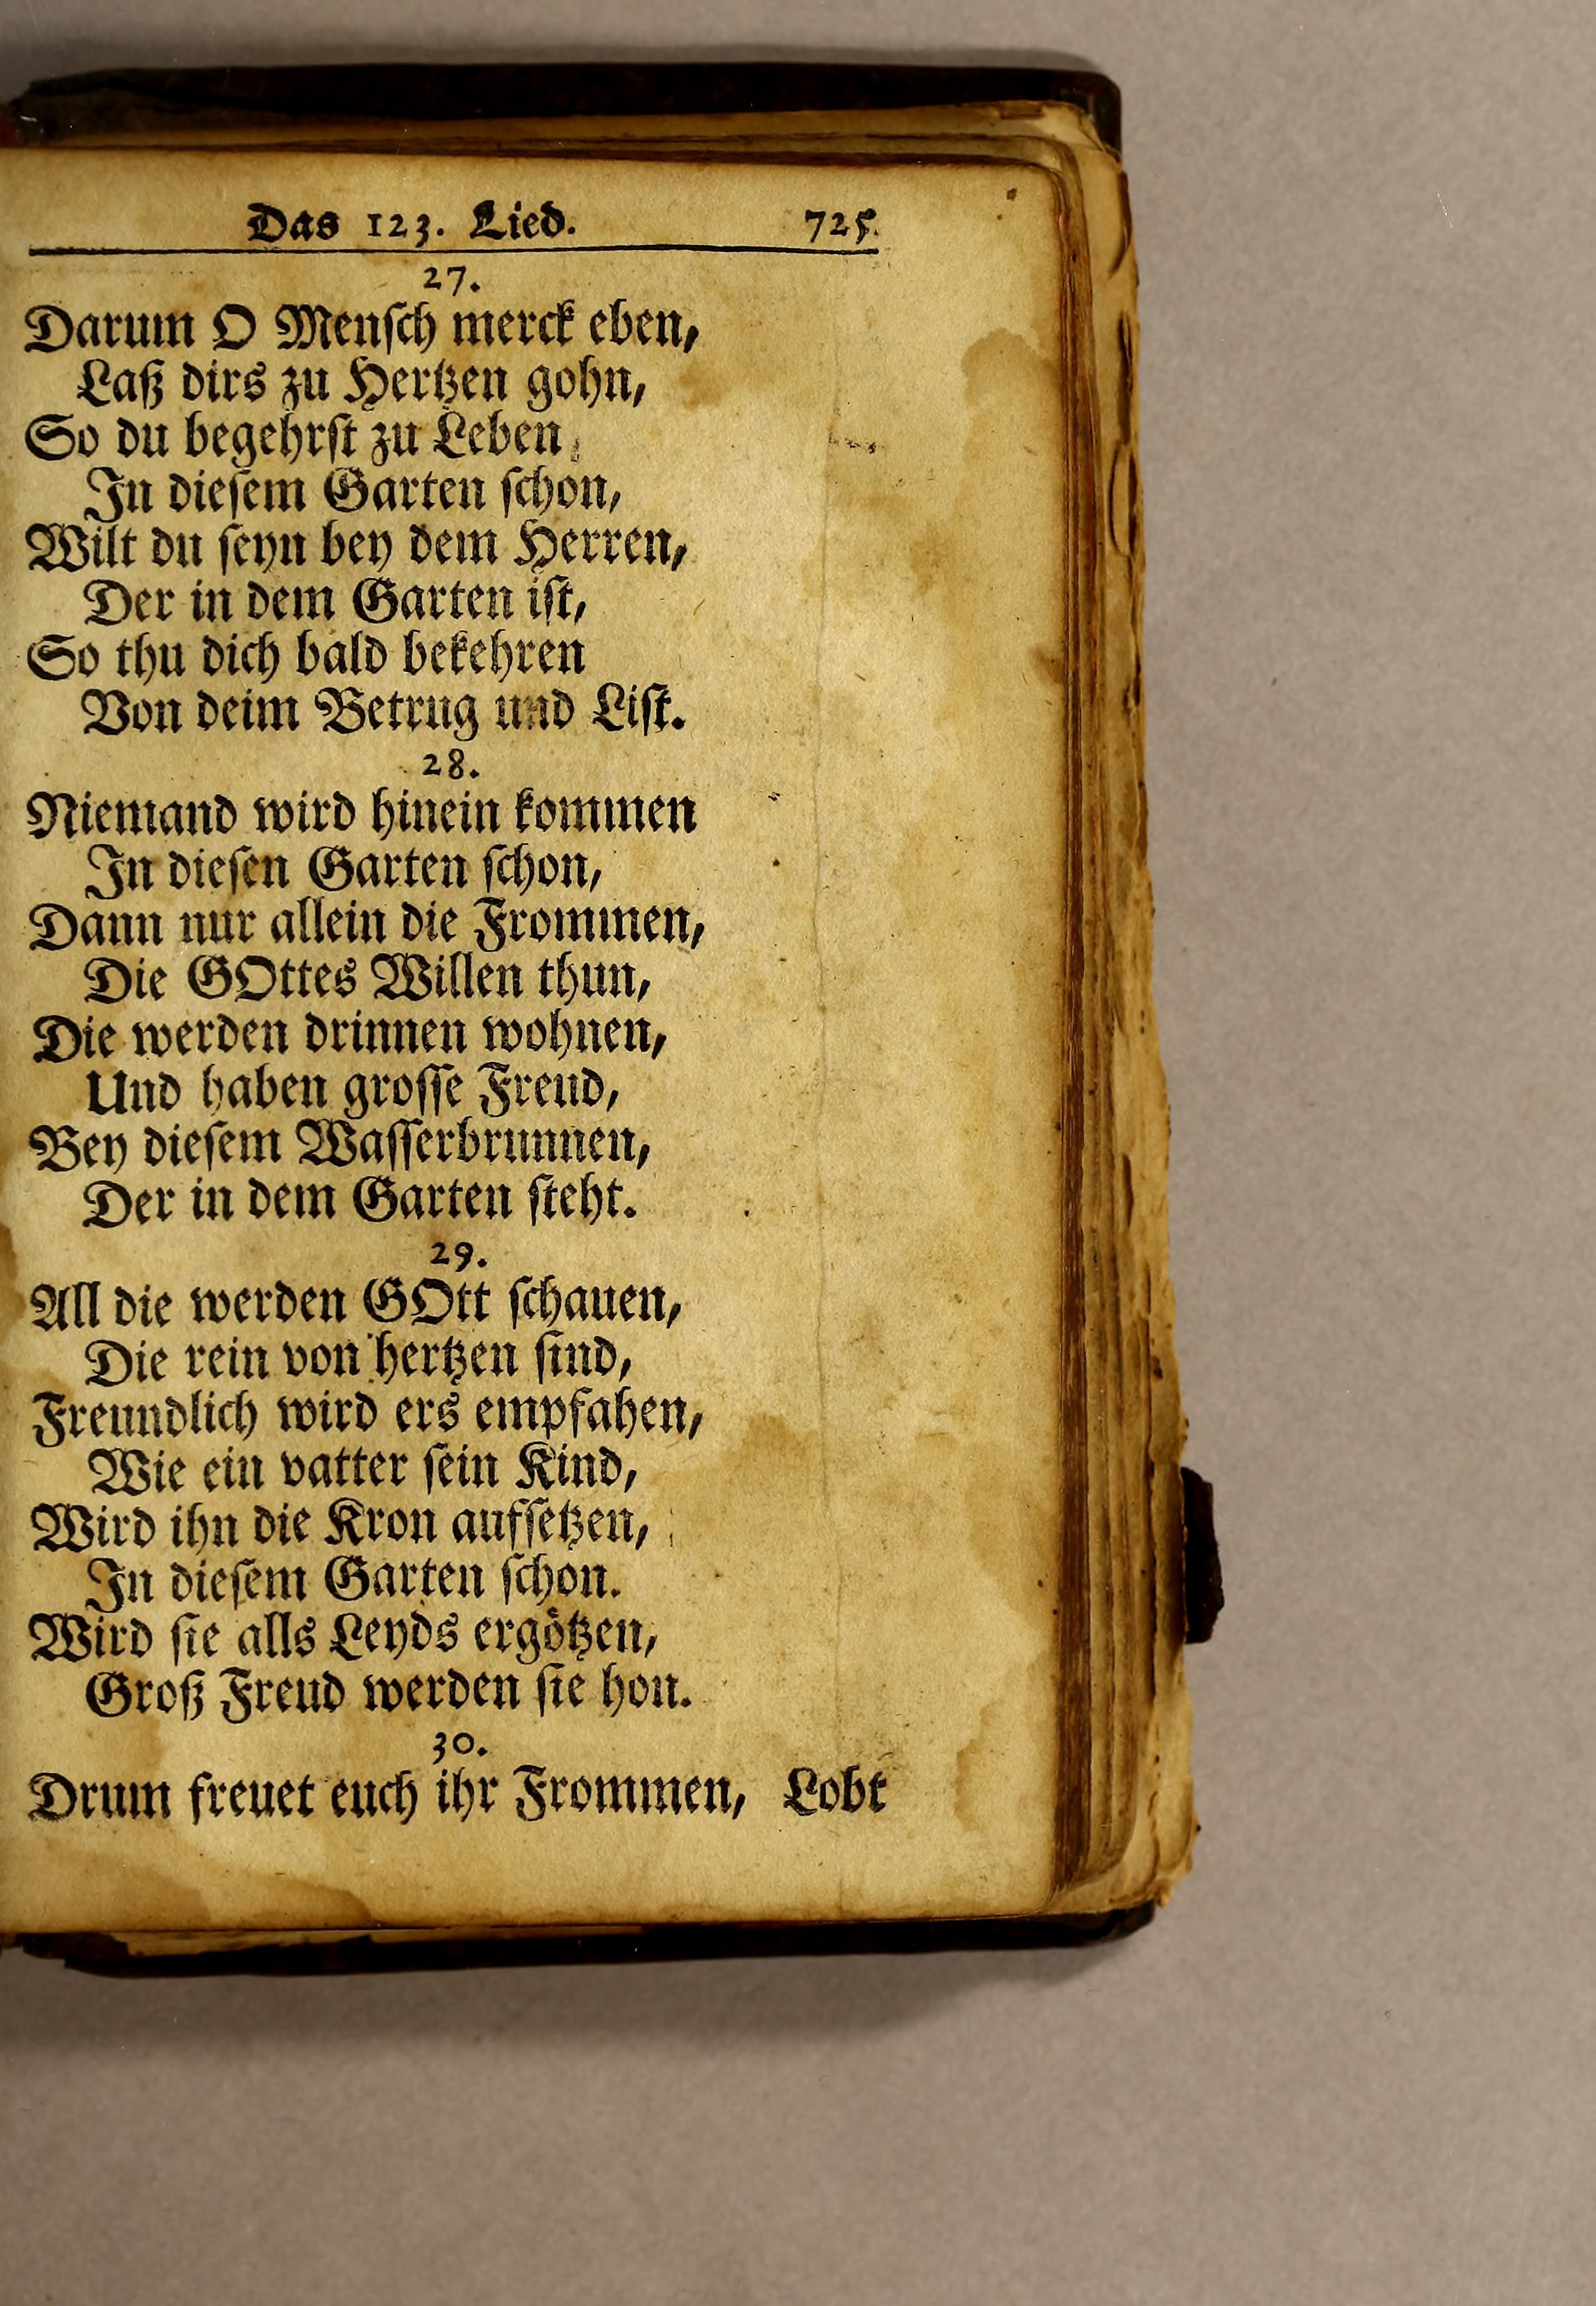 Das 123. Lied. 725.
27.
Darum O Menſch merck eben,
Laß dirs zu Hertzen gohn,
So du begehrſt zu Leben,
In dieſem Garten ſchon,
Wilt du ſeyn bey dem Herren,
Der in dem Garten iſt,
So thu dich bald bekehren
Von deim Betrug und Liſt.
28.
Niemand wird hinein kommen
In dieſen Garten ſchon,
Dann nur allein die Frommen,
Die GOttes Willen thun,
Die werden drinnen wohnen,
Und haben groſſe Freud,
Bey dieſem Waſſerbrunnen,
Der in dem Garten ſteht.
29.
All die werden GOtt ſchauen,
Die rein von hertzen ſind,
Freundlich wird ers empfahen,
Wie ein vatter ſein Kind,
Wird ihn die Kron aufſetzen,
In dieſem Garten ſchon.
Wird ſie alls Leyds ergötzen,
Groß Freud werden ſie hon.
30.
Drum freuet euch ihr Frommen, Lobt